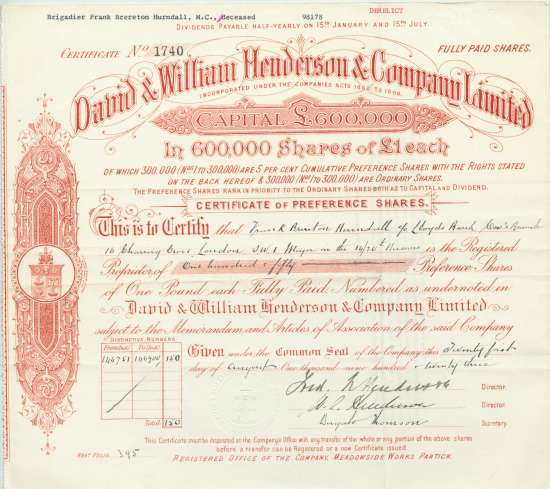 DERELICT
Brigadier Frank Brereton Hurndall, M.C., deceased 98178
DIVIDENDS PAYABLE HALF-YEARLY ON 15TH JANUARY AND 15TH JULY.
CERTIFICATE No. 1740 FULLY PAID SHARES.
David & William Henderson & Company Limited
INCORPORATED UNDER THE COMPANIES ACTS 1862 TO 1898.
CAPITAL £600,000
In 600,000 Shares of £1 each
OF WHICH 300,000 (Nos 1 TO 300,000) ARE 5 PER CENT CUMULATIVE PREFERENCE SHARES WITH THE RIGHTS STATED
ON THE BACK HEREOF & 300,000 (Nos 1 TO 300,000) ARE ORDINARY SHARES.
THE PREFERENCE SHARES RANK IN PRIORITY TO THE ORDINARY SHARES BOTH AS TO CAPITAL AND DIVIDEND.
CERTIFICATE OF PREFERENCE SHARES.
This is to Certify that Frank Brereton Hurndall c/o Lloyds Bank Cox's Branch
16 Charing Cross London S.W.1 Major in the 14/20th Hussars is the Registered
Proprietor of One hundred & fifty Preference Shares
of One Pound each Fully Paid Numbered as undernoted in
David & William Henderson & Company Limited
subject to the Memorandum and Articles of Association of the said Company
DISTINCTIVE NUMBERS
From incl. To incl.
146751 146900 150
Total 150
Given under the Common Seal of the Company this Twenty first
day of August One thousand nine hundred & twenty three
Director.
Director.
Secretary
This Certificate must be deposited at the Company's Office with any transfer of the whole or any portion of the above shares
before a transfer can be Registered or a new Certificate issued.
REGISTERED OFFICE OF THE COMPANY, MEADOWSIDE WORKS PARTICK.
395